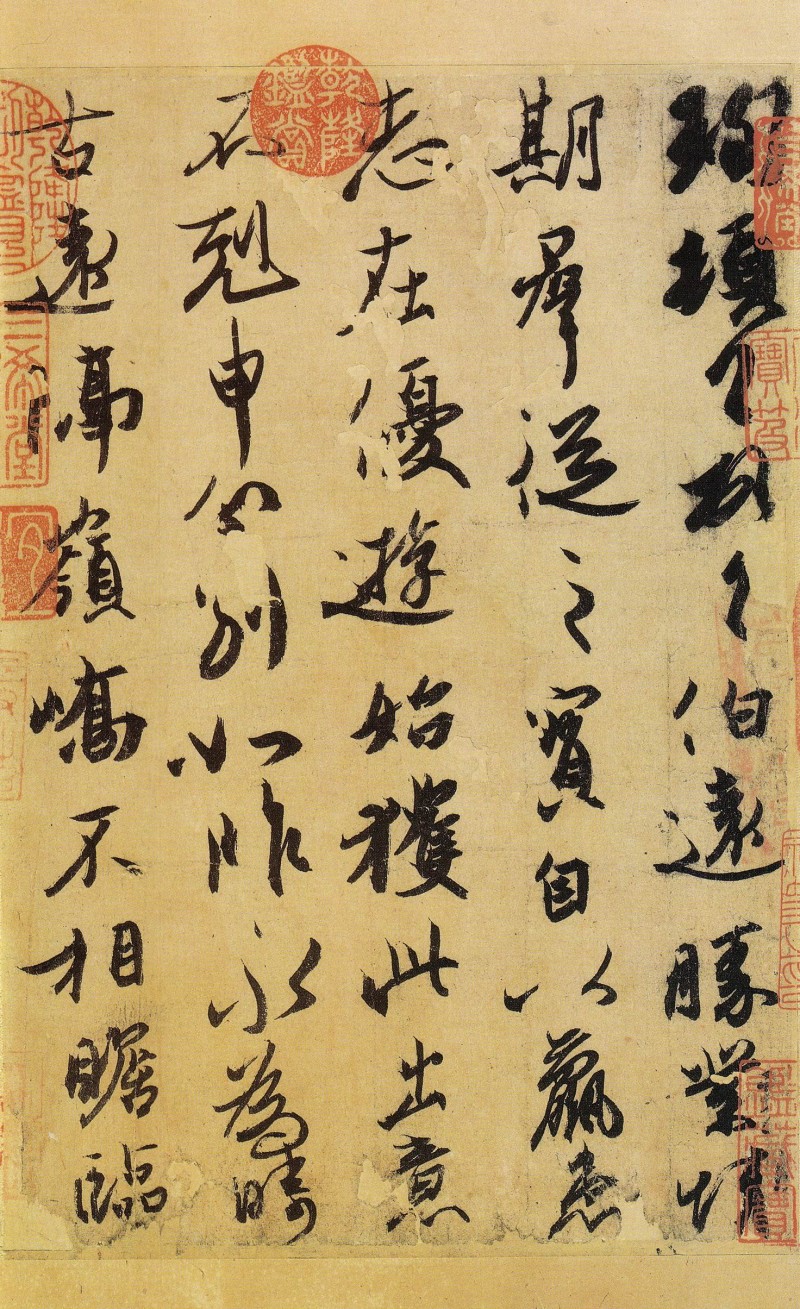 珣頓首頓首伯遠勝業情
期群從之寶自以羸患
志在優遊始獲此出意
不剋申分別如昨永為疇
古遠隔嶺嶠不相瞻臨
乾隆鑑賞
三希堂